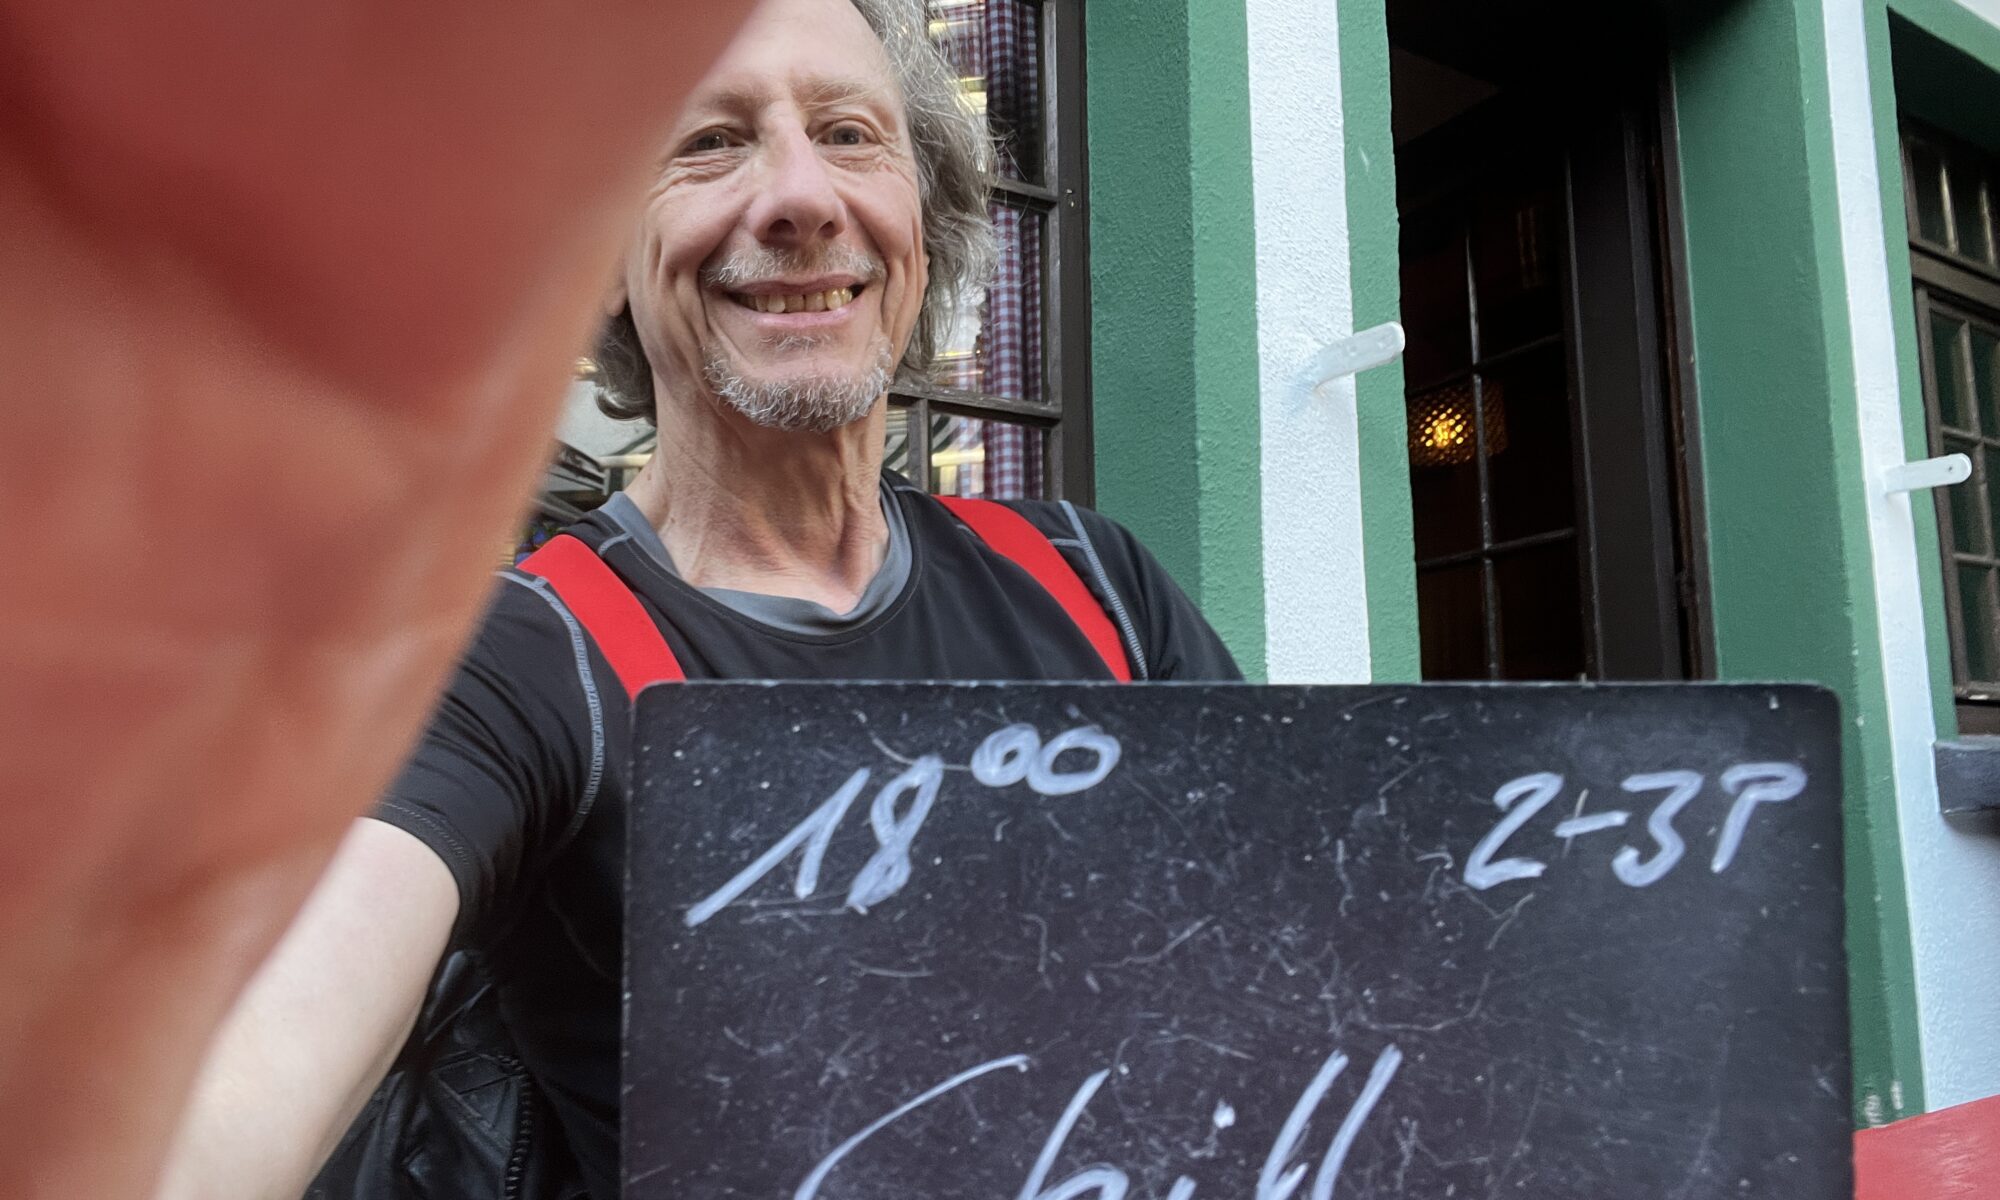 18⁰⁰ 2-3P